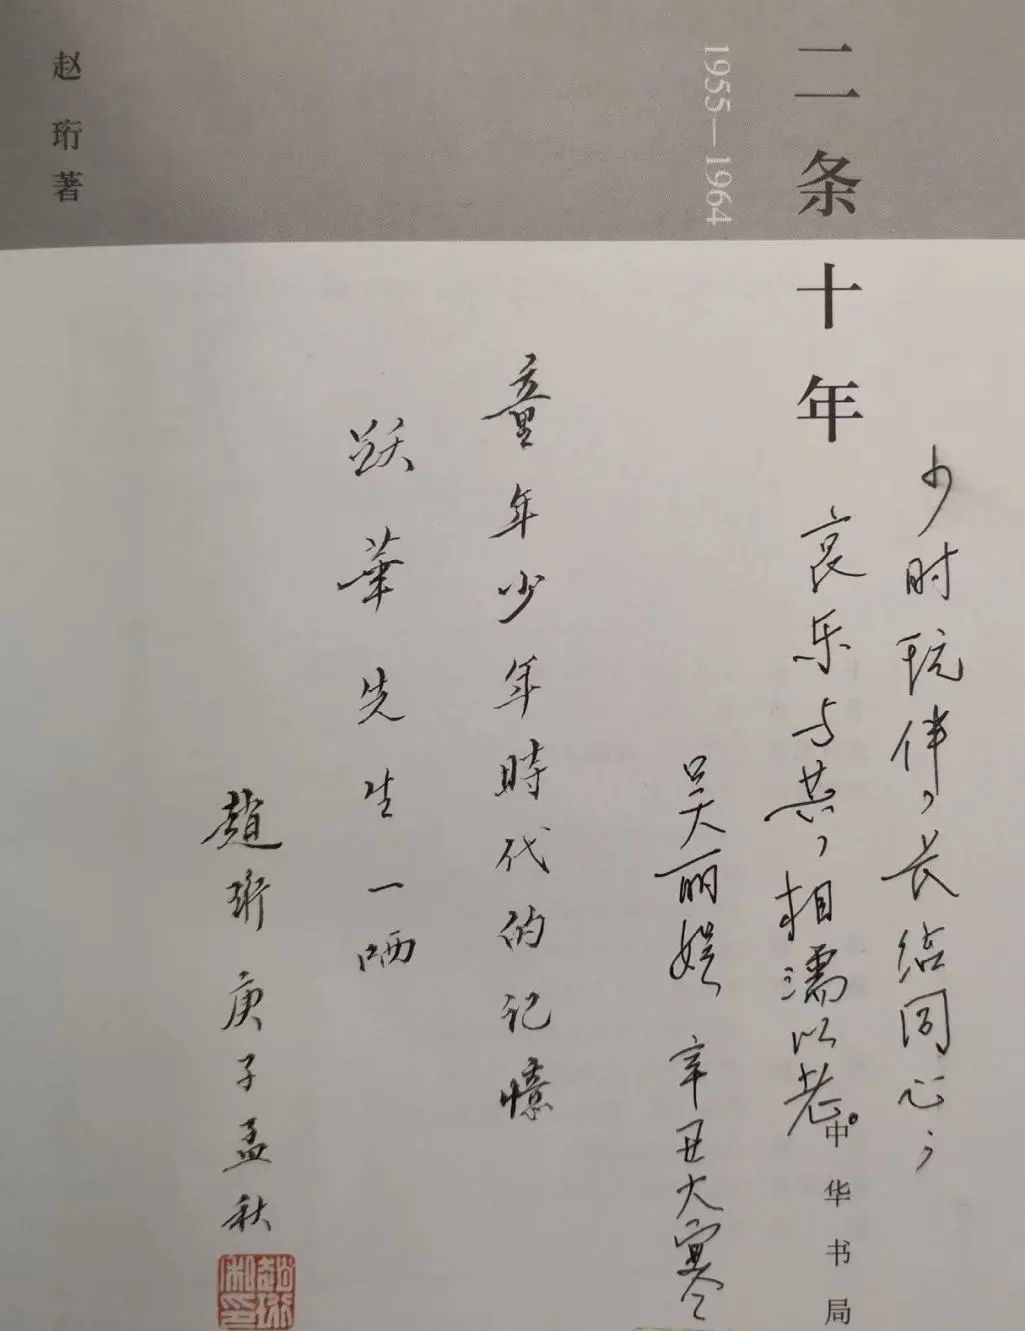 少时玩伴，长结同心；
哀乐与共，相濡以老。
吴丽娱 辛丑大寒
二条十年
1955—1964
童年少年時代的记憶
跃華先生一哂
趙珩 庚子孟秋
赵珩著
中华书局